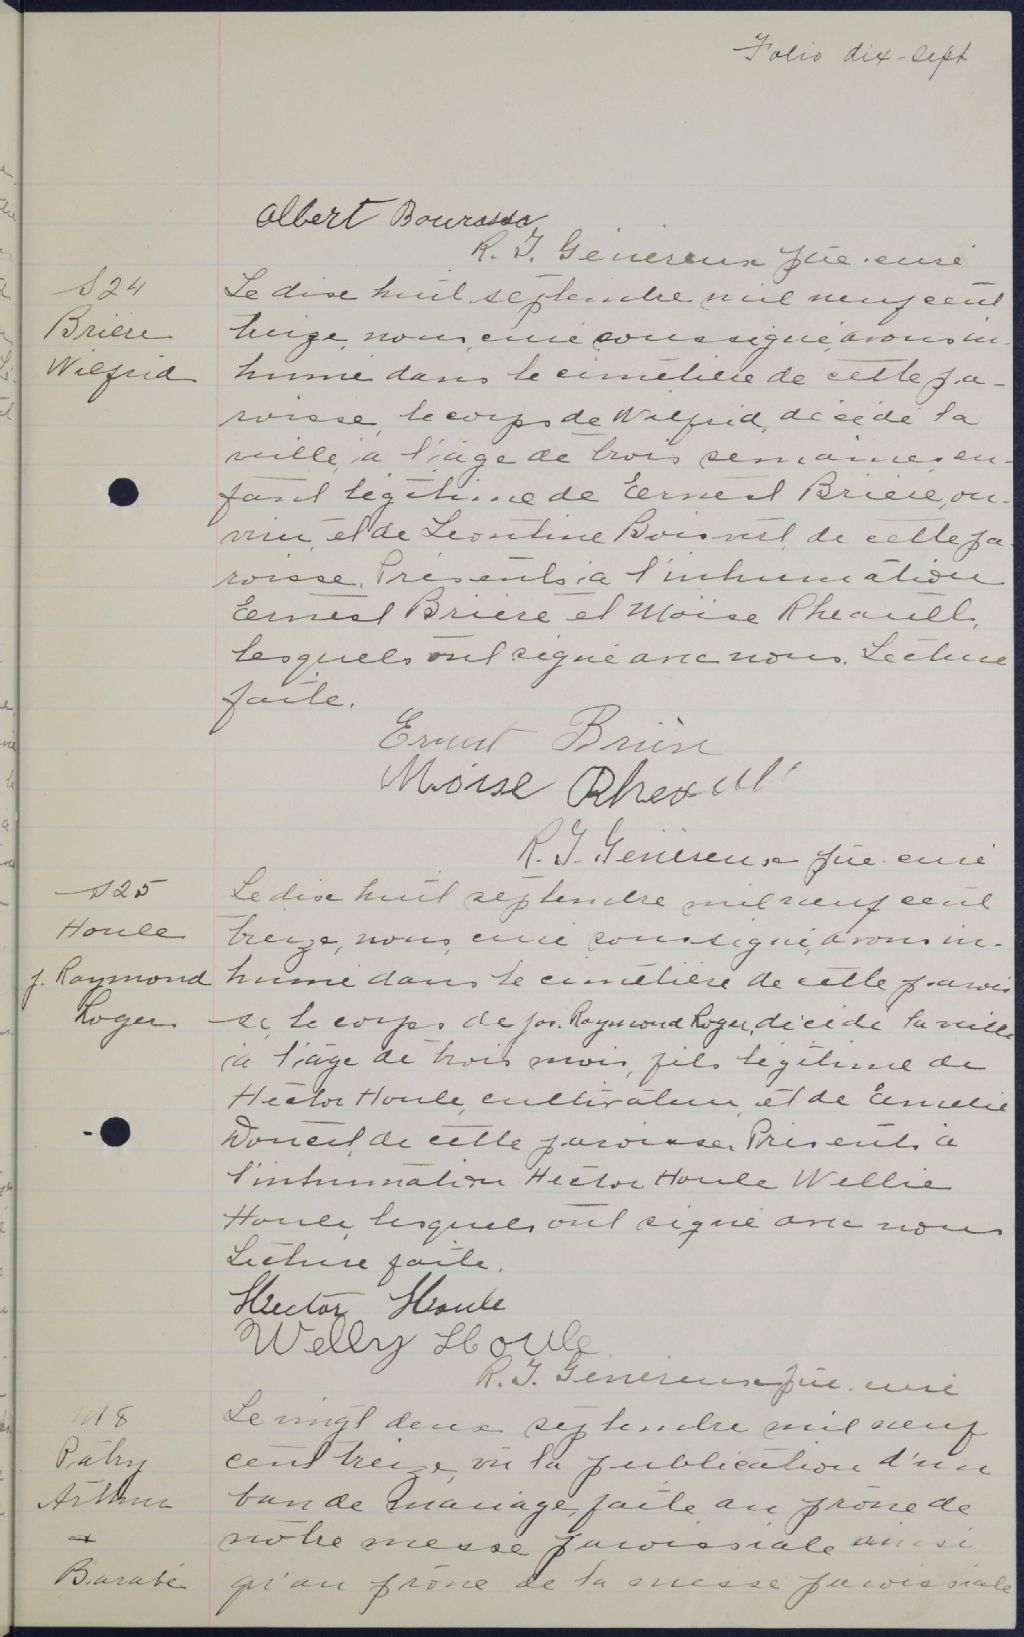 Folio dix-sept
Albert Bourassa
R. J. Généreux ptre. curé
S 24
Brière
Wilfrid
Le dix huit septembre mil neuf cent
treize, nous, curé soussigné, avons in-
humé dans le cimetière de cette pa-
roisse, le corps de Wilfrid, décédé la
veille, à l'âge de trois semaines, en-
fant légitime de Ernest Brière, ou-
vrier, et de Leontine Boisvert, de cette pa-
roisse. Présents à l'inhumation
Ernest Brière et Moïse Rheault,
lesquels ont signé avec nous. Lecture
faite.
Ernest Brière
Moise Rheault
R. J. Généreux ptre. curé
S 25
Houle
J. Raymond
Roger
Le dix huit septembre mil neuf cent
treize, nous, curé soussigné, avons in-
humé dans le cimetière de cette parois
se, le corps de Jos. Raymond Roger, décédé la veille
à l'âge de trois mois, fils légitime de
Hector Houle, cultivateur, et de Emélie
Doucet, de cette paroisse. Présents à
l'inhumation Hector Houle Wellie
Houle, lesquels ont signé avec nous
Lecture faite.
Hector Houle
Welly Houle
R. J. Généreux ptre. curé
M 8
Patry
Arthur
+
Barabé
Le vingt deux septembre mil neuf
cent treize, vu la publication d'un
ban de mariage, faite au prône de
notre messe paroissiale ainsi
qu'au prône de la messe paroissiale